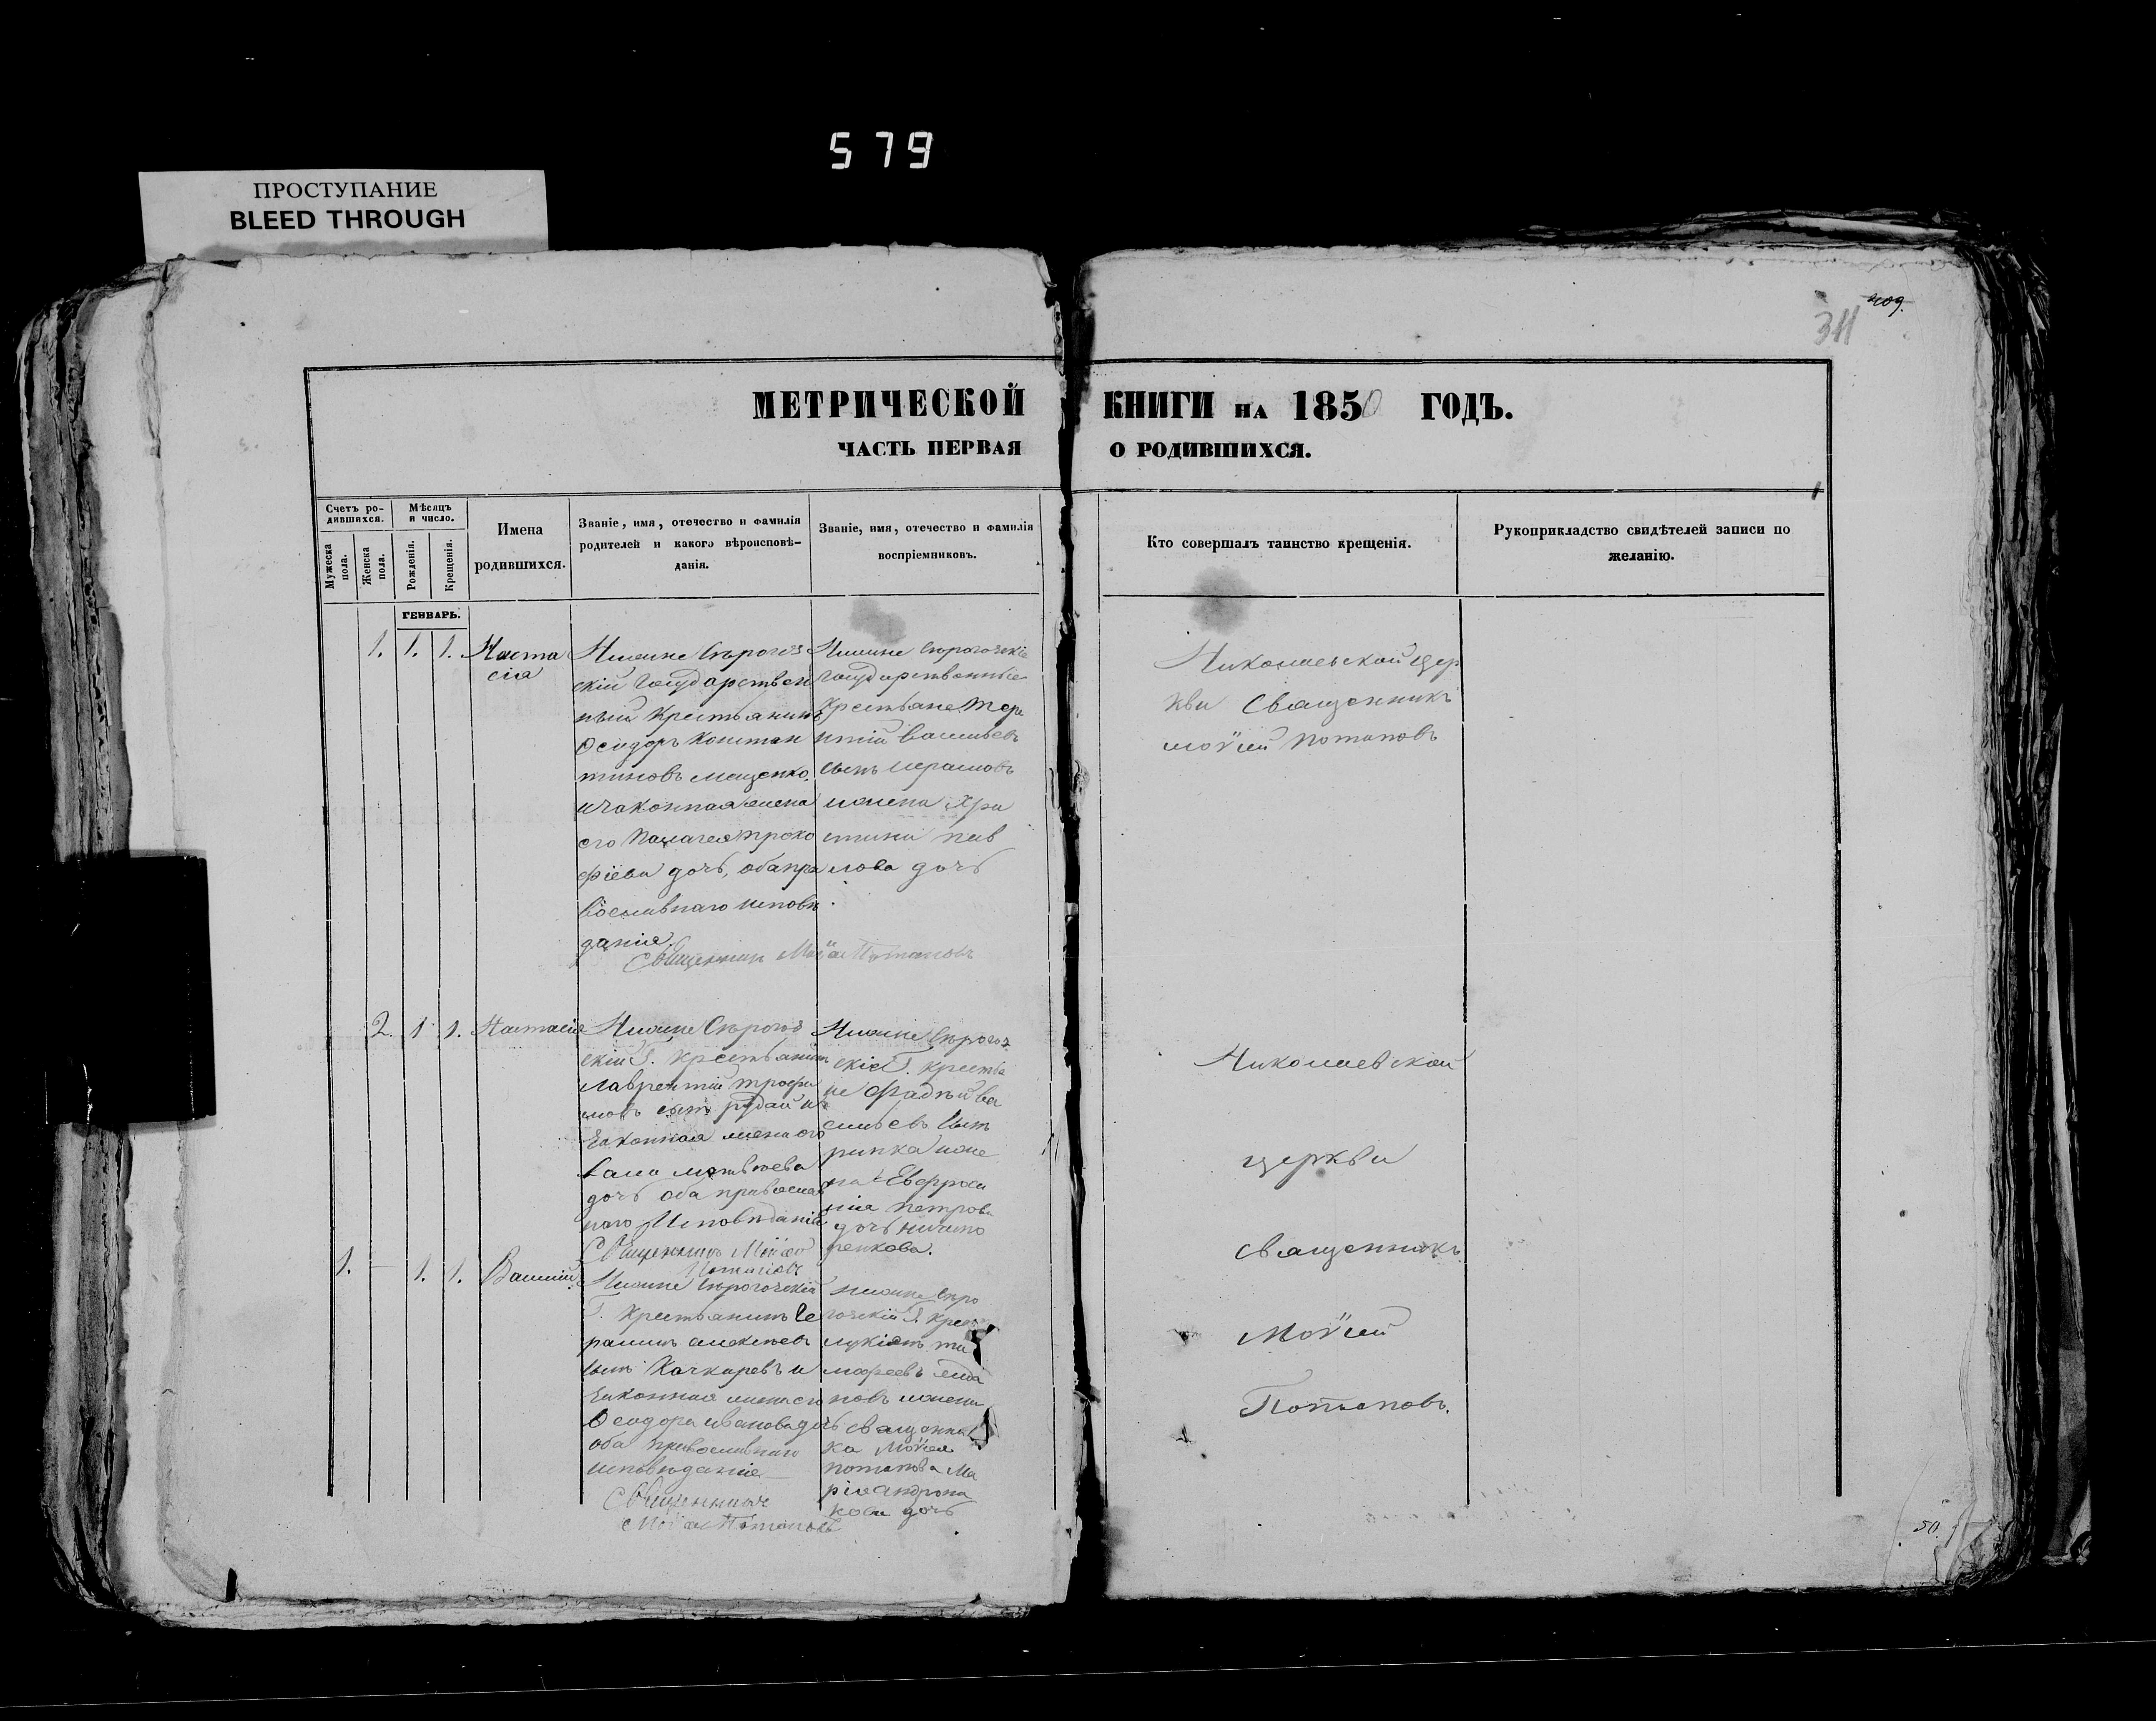 579
ПРОСТУПАНИЕ
BLEED THROUGH
409.
311
МЕТРИЧЕСКОЙ КНИГИ НА 1850 ГОДЪ.
ЧАСТЬ ПЕРВАЯ О РОДИВШИХСЯ.
Счетъ ро-
дившихся.
Мужеска пола.
Женска пола.
Мѣсяцъ и число.
Рожденія.
Крещенія.
Имена
родившихся.
Званіе, имя, отечество и фамилія
родителей и какого вѣроисповѣ-
данія.
Званіе, имя, отечество и фамилія
воспріемниковъ.
Кто совершалъ таинство крещенія.
Рукоприкладство свидѣтелей записи по
желанію.
ГЕНВАРЬ.
1. 1. 1.
Наста
сіа
Нижне Сѣрогоз
скій Государствен
ный Крестьянинъ
Ѳеодоръ Констан
тиновъ Мащенко
и законная жена
его Палагея Троѳи
фіева дочь, оба пра
вославнаго исповѣ
данія.
Священник Мойсей Потаповъ
Нижне Сѣрогозскіе
Государственные
Крестьяне Тере
нтій Васильевъ
сынъ
и жена Хри
стина Пав
лова дочь
Николаевской цер
кви Священникъ
Мойсей Потаповъ
2. 1 1.
Настасіа
Нижне Сѣрогоз
скій Г. Крестьянинъ
Лаврентій Трофи
мовъ сынъ Рудай и
законная жена его
Матвѣева
дочь оба православ
наго Исповѣданія
Священникъ Мойсей
Потаповъ
Нижне Сѣрогоз
скіе Г. Крестья
не Фадѣй Ва
сильевъ сынъ
и же
на Евфроси
нія Петрова
дочь Ничипо
ренкова.
Николаевской
церкви
Священникъ
Мойсей
Потаповъ.
1. — 1. 1.
Василій
Нижне Сѣрогозскій
Г. Крестьянинъ Ге
расимъ Алексѣевъ
сынъ Качкаревъ и
законная жена его
Ѳеодора Иванова дочь
оба православнаго
исповѣданія
Священникъ
Мойсей Потаповъ
Нижне Сѣро
гозскій Г. Крес
Лукіянъ Ти
мофеевъ
новъ и жена
Священни
ка Мойсея
Потапова Ма
рія Андрона
кова дочь
50.